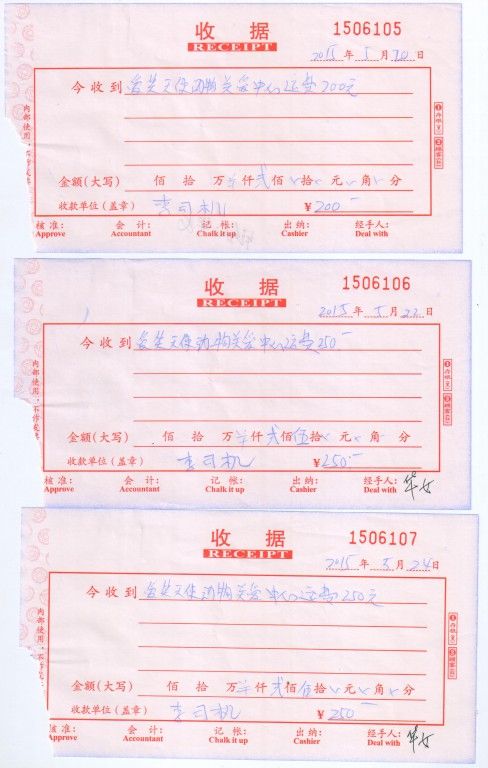 收 据
RECEIPT
1506105
2015 年 5 月 20 日
今 收 到 爱芝天使动物关爱中心运费200元
金额(大写) 佰 拾 万 仟 贰 佰 拾 元 角 分
收款单位(盖章) 李司机 ¥200—
核 准: 会 计: 记 帐: 出 纳: 经手人:
Approve Accountant Chalk it up Cashier Deal with
内部使用,不作
收 据
RECEIPT
1506106
2015 年 5 月 22 日
今 收 到 爱芝天使动物关爱中心运费250—
金额(大写) 佰 拾 万 仟 贰 佰 伍 拾 元 角 分
收款单位(盖章) 李司机 ¥250—
核 准: 会 计: 记 帐: 出 纳: 经手人:
Approve Accountant Chalk it up Cashier Deal with
内部使用,不作
收 据
RECEIPT
1506107
2015 年 5 月 24 日
今 收 到 爱芝天使动物关爱中心运费250元
金额(大写) 佰 拾 万 仟 贰 佰 伍 拾 元 角 分
收款单位(盖章) 李司机 ¥ 250—
核 准: 会 计: 记 帐: 出 纳: 经手人:
Approve Accountant Chalk it up Cashier Deal with
内部使用,不